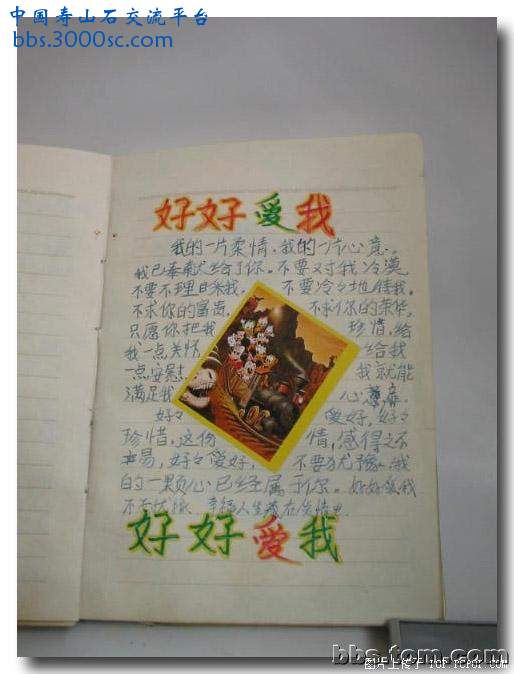 中国寿山石交流平台
bbs.3000sc.com
好好爱我
我的一片柔情,我的一片心意。
我已奉献给了你。不要对我冷漠
不要不理自来我, 不要冷冷地待我。
不求你的富贵, 不求你的荣华,
只愿你把我 珍惜,给
我一点关怀 给我
一点安慰 我就能
满足我 心
好々 爱好,好々
珍惜,这份 情,感得之不
易,好々爱好, 不要犹豫。我
的一颗心已经属于你。好好爱我
不 幸福人生
好好爱我
bbs.tom.com
图片上传于